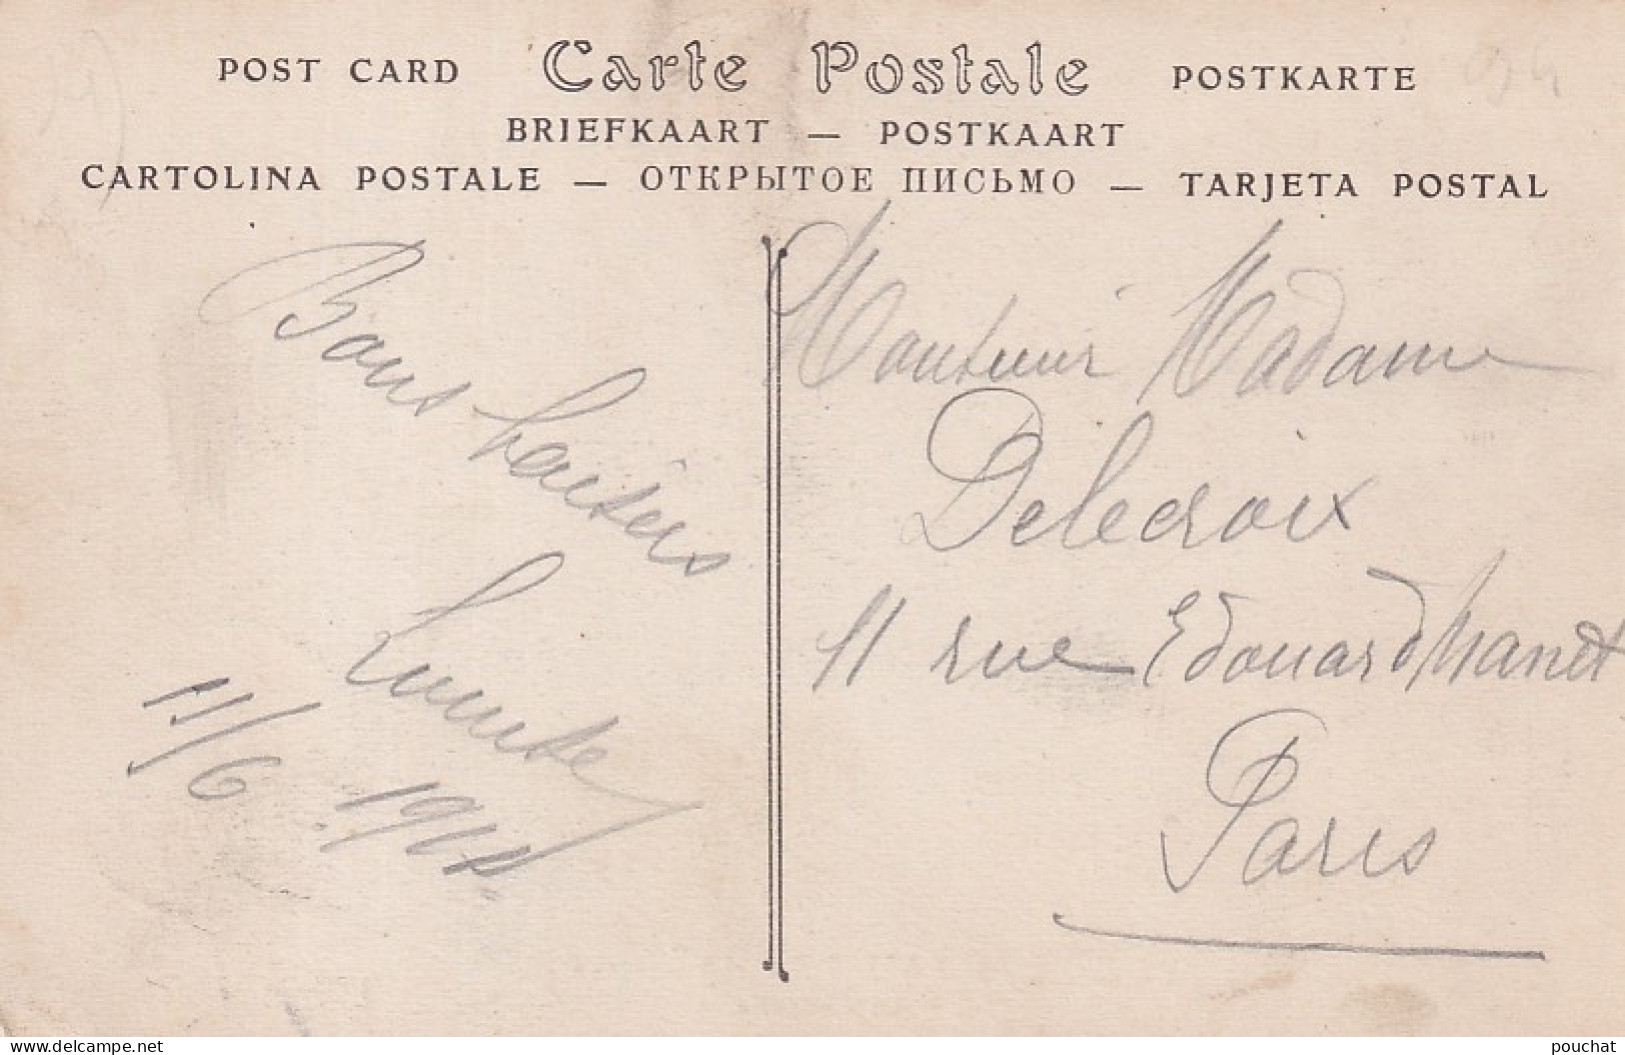 POST CARD Carte Postale POSTKARTE
BRIEFKAART — POSTKAART
CARTOLINA POSTALE — ОТКРЫТОЕ ПИСЬМО — TARJETA POSTAL
Bons baisers
11/6 1914.
Monsieur Madame
Delecroix
11 rue Edouard Manet
Paris
delcampe.net
pouchat